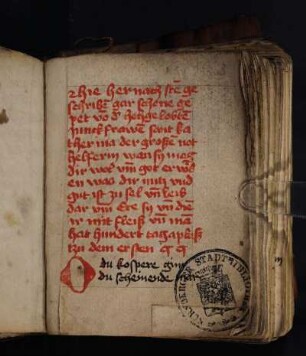 Hie her nach stē ge
schribē gar schene ge
pet vō d͛ heiligē lobtē
junckfrawē sant ka
therina der grossē not
helferin wan sy mag
dir wol vm̄ got erwer
en was dir nutz vnd
gut ist zu sel vn̄ leib
dar vm̄ Ere sy vn̄ diē
ir mit fleiß vn̄ ma
hat hundert tag aplaß
zu dem ersten
O du kospere
du scheinende
STADTBIBLIOTHEK